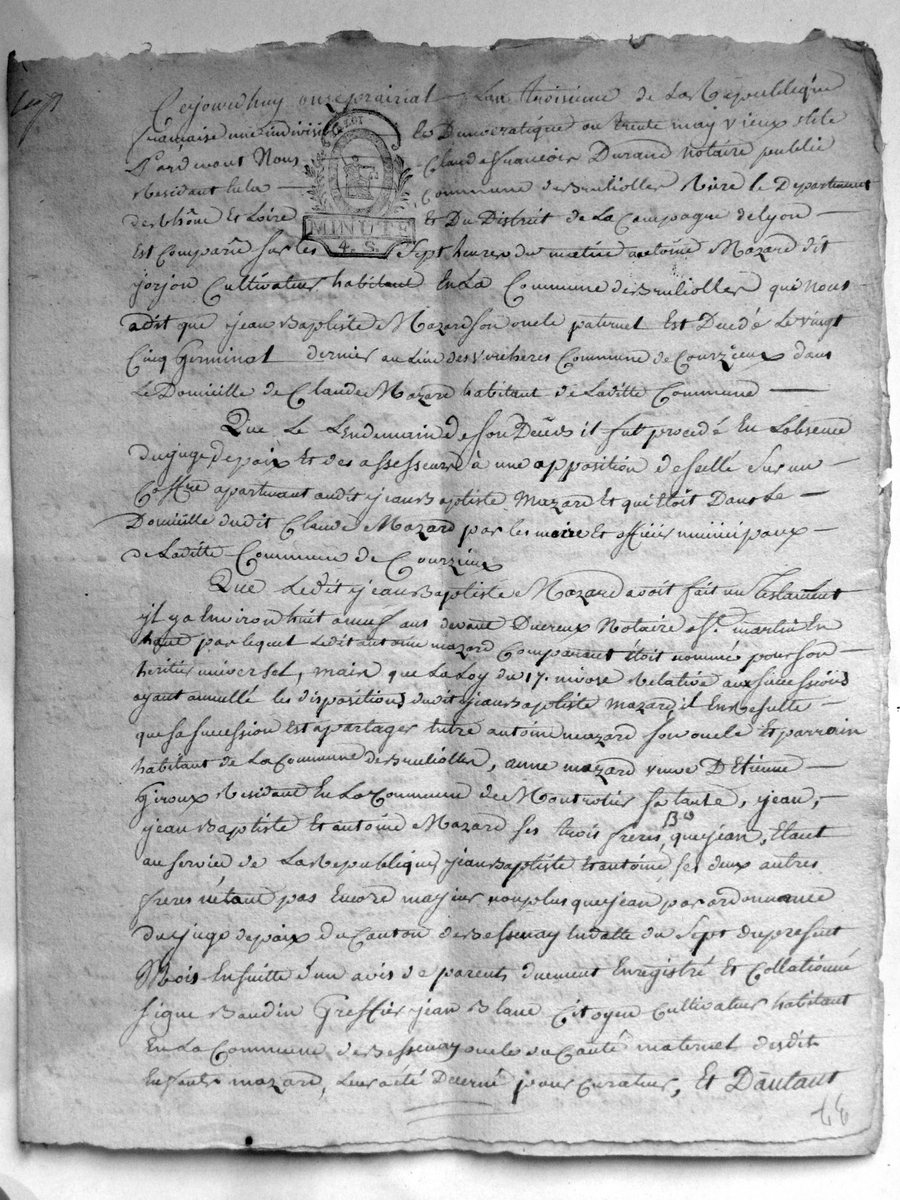 Cejourdhuy onze prairial L'an troisieme de La Republique
francaise une indivisi le Democratique ou trente may vieux stile
Pardevant Nous Claude francois Durand notaire publie
Residant en la Commune de Brulliolles Rière le Departement
de Rhône Et Loire Et Du District de La Campagne de Lyon
LA LOI
MINUTE
4. S.
Est Comparû sur les Sept heures du matin antoine Mazard dit
jorjon Cultivateur habitant En La Commune de Brulliolles qui nous
a dit que jean Baptiste Mazard son oncle paternel Est Decedé Le vingt
Cinq Germinal dernier au Lieu des Verchères Commune de Courzieux dans
Le Domicille de Claude Mazard habitant de Laditte Commune
Que Le Lendemain de son Décès il fut procedé En Labsence
du juge de paix Et des assesseurs à une apposition de scellé Sur un
Coffre apartenant audit jean Baptiste Mazard Et qui Etoit Dans Le
Domicille dudit Claude Mazard par les maire Et officiers municipaux
de Laditte Commune de Courzieux
Que Ledit jean Baptiste Mazard avoit fait un Testament
il y a Environ huit a neuf ans devant Ducreux Notaire a St. martin En
haut par lequel Ledit antoine mazard Comparant Etoit nommé pour son
heritier universel, mais que La Loy du 17. nivose Relative aux successions
ayant annullé les dispositions dudit jean Baptiste mazard il En Resulte
que sa succession Est a partager Entre antoine mazard son oncle Et parrain
habitant de La Commune de Brulliolles, anne mazard veuve D'Etienne
Giroux Residant En La Commune de Montrotier sa tante, jean,
jean Baptiste Et antoine Mazard ses trois freres, que jean, Etant
au service de La Republique, jean Baptiste Et antoine, ses deux autres
freres n'étant pas Encore majeurs non plus que jean par ordonnance
du juge de paix du Canton de Bessenay En datte du Sept du present
Mois Ensuitte d'un avis de parents duement Enregistré Et Collationné
signé Baudin Greffier jean Blanc Citoyen Cultivateur habitant
En La Commune de Bessenay oncle du Coauté maternel desdits
Enfants mazard, Leur a été Decerné pour Curateur, Et D'autant